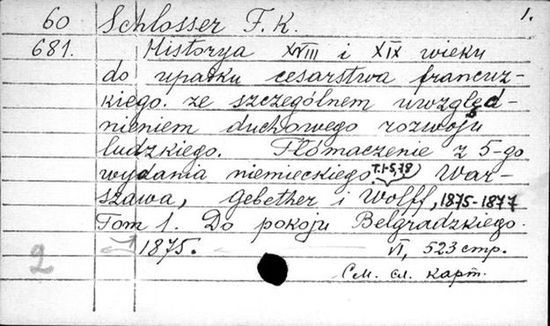 1.
60 Schlosser F. K.
681. Historya XVIII i XIX wieku
do upadku cesarstwa francuz-
kiego. ze szczególnem uwzględ-
nieniem duchowego rozwoju
ludzkiego. Tłómaczenie z 5-go
wydania niemieckiego (T. 1-5, 78) War-
szawa, Gebether i Wolff, 1875-1877
Tom 1. Do pokoju Belgradzkiego.
1875. VI, 523 стр.
2
См. сл. карт.